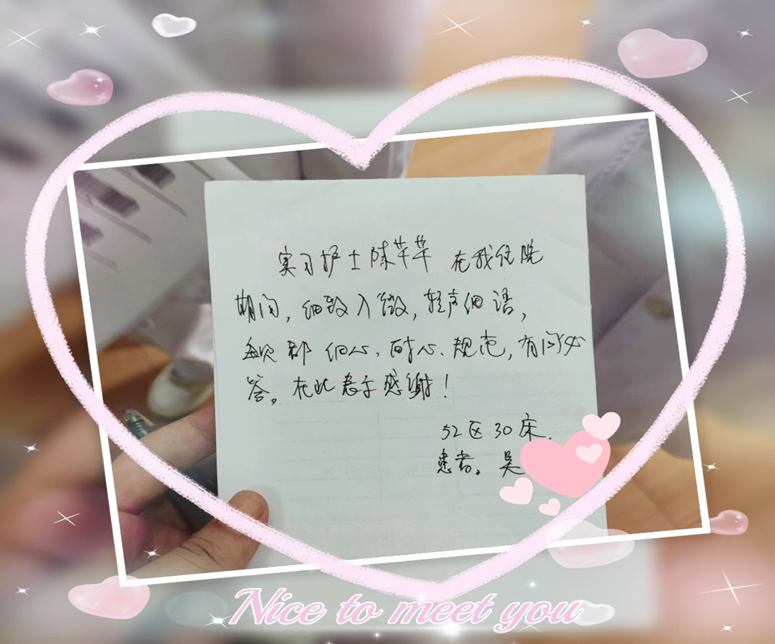 实习护士陈芊芊 在我住院
期间，细致入微，轻声细语，
每次都细心、耐心、规范，有问必
答。在此表示感谢！
52区30床.
患者。吴
Nice to meet you